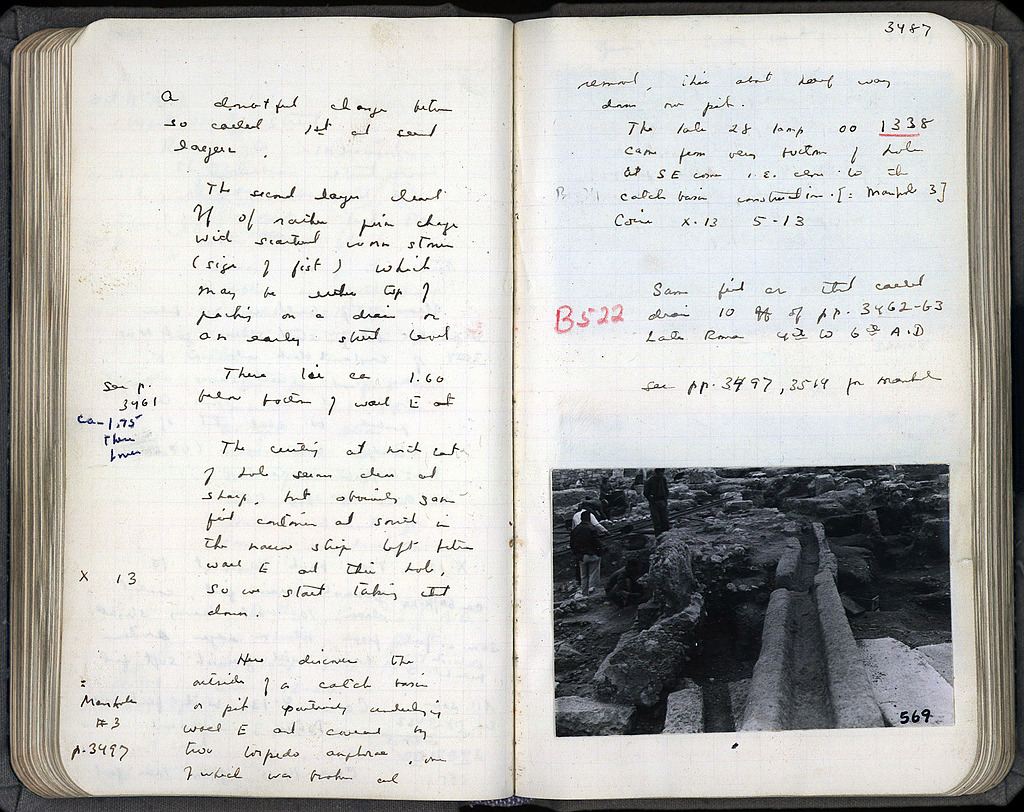 A doubtful change between
so called 1st and second
layers.
The second layer cleared
of rather firm change
with scattered worn stones
(sign of fist) which
may be either top of
packing on a drain or
an early street level
see p.
3461
ca -1.75
There
lower
There lie ca 1.60
below bottom of wall E and
The cutting at north east
of hole seems clean and
sharp, but obviously same
fill continues at south in
the narrow strip left between
wall E and this hole,
X 13
so we start taking it
down.
Here discover the
outside of a catch basin
or pit partially underlying
:
Manhole
#3
p.3497
wall E and covered by
two torpedo amphorae, one
of which was broken and
3487
removed, this about half way
down our pit.
The late 28 lamp 00 1338
came from very bottom of hole
at SE corner i.e. close to the
catch basin construction. [= Manhole 3]
Coins X.13 5-13
B522
Same fill as that called
drain 10 of pp. 3462-63
Late Roman 4th to 6th A.D
see pp. 3497, 3519 for manhole
569